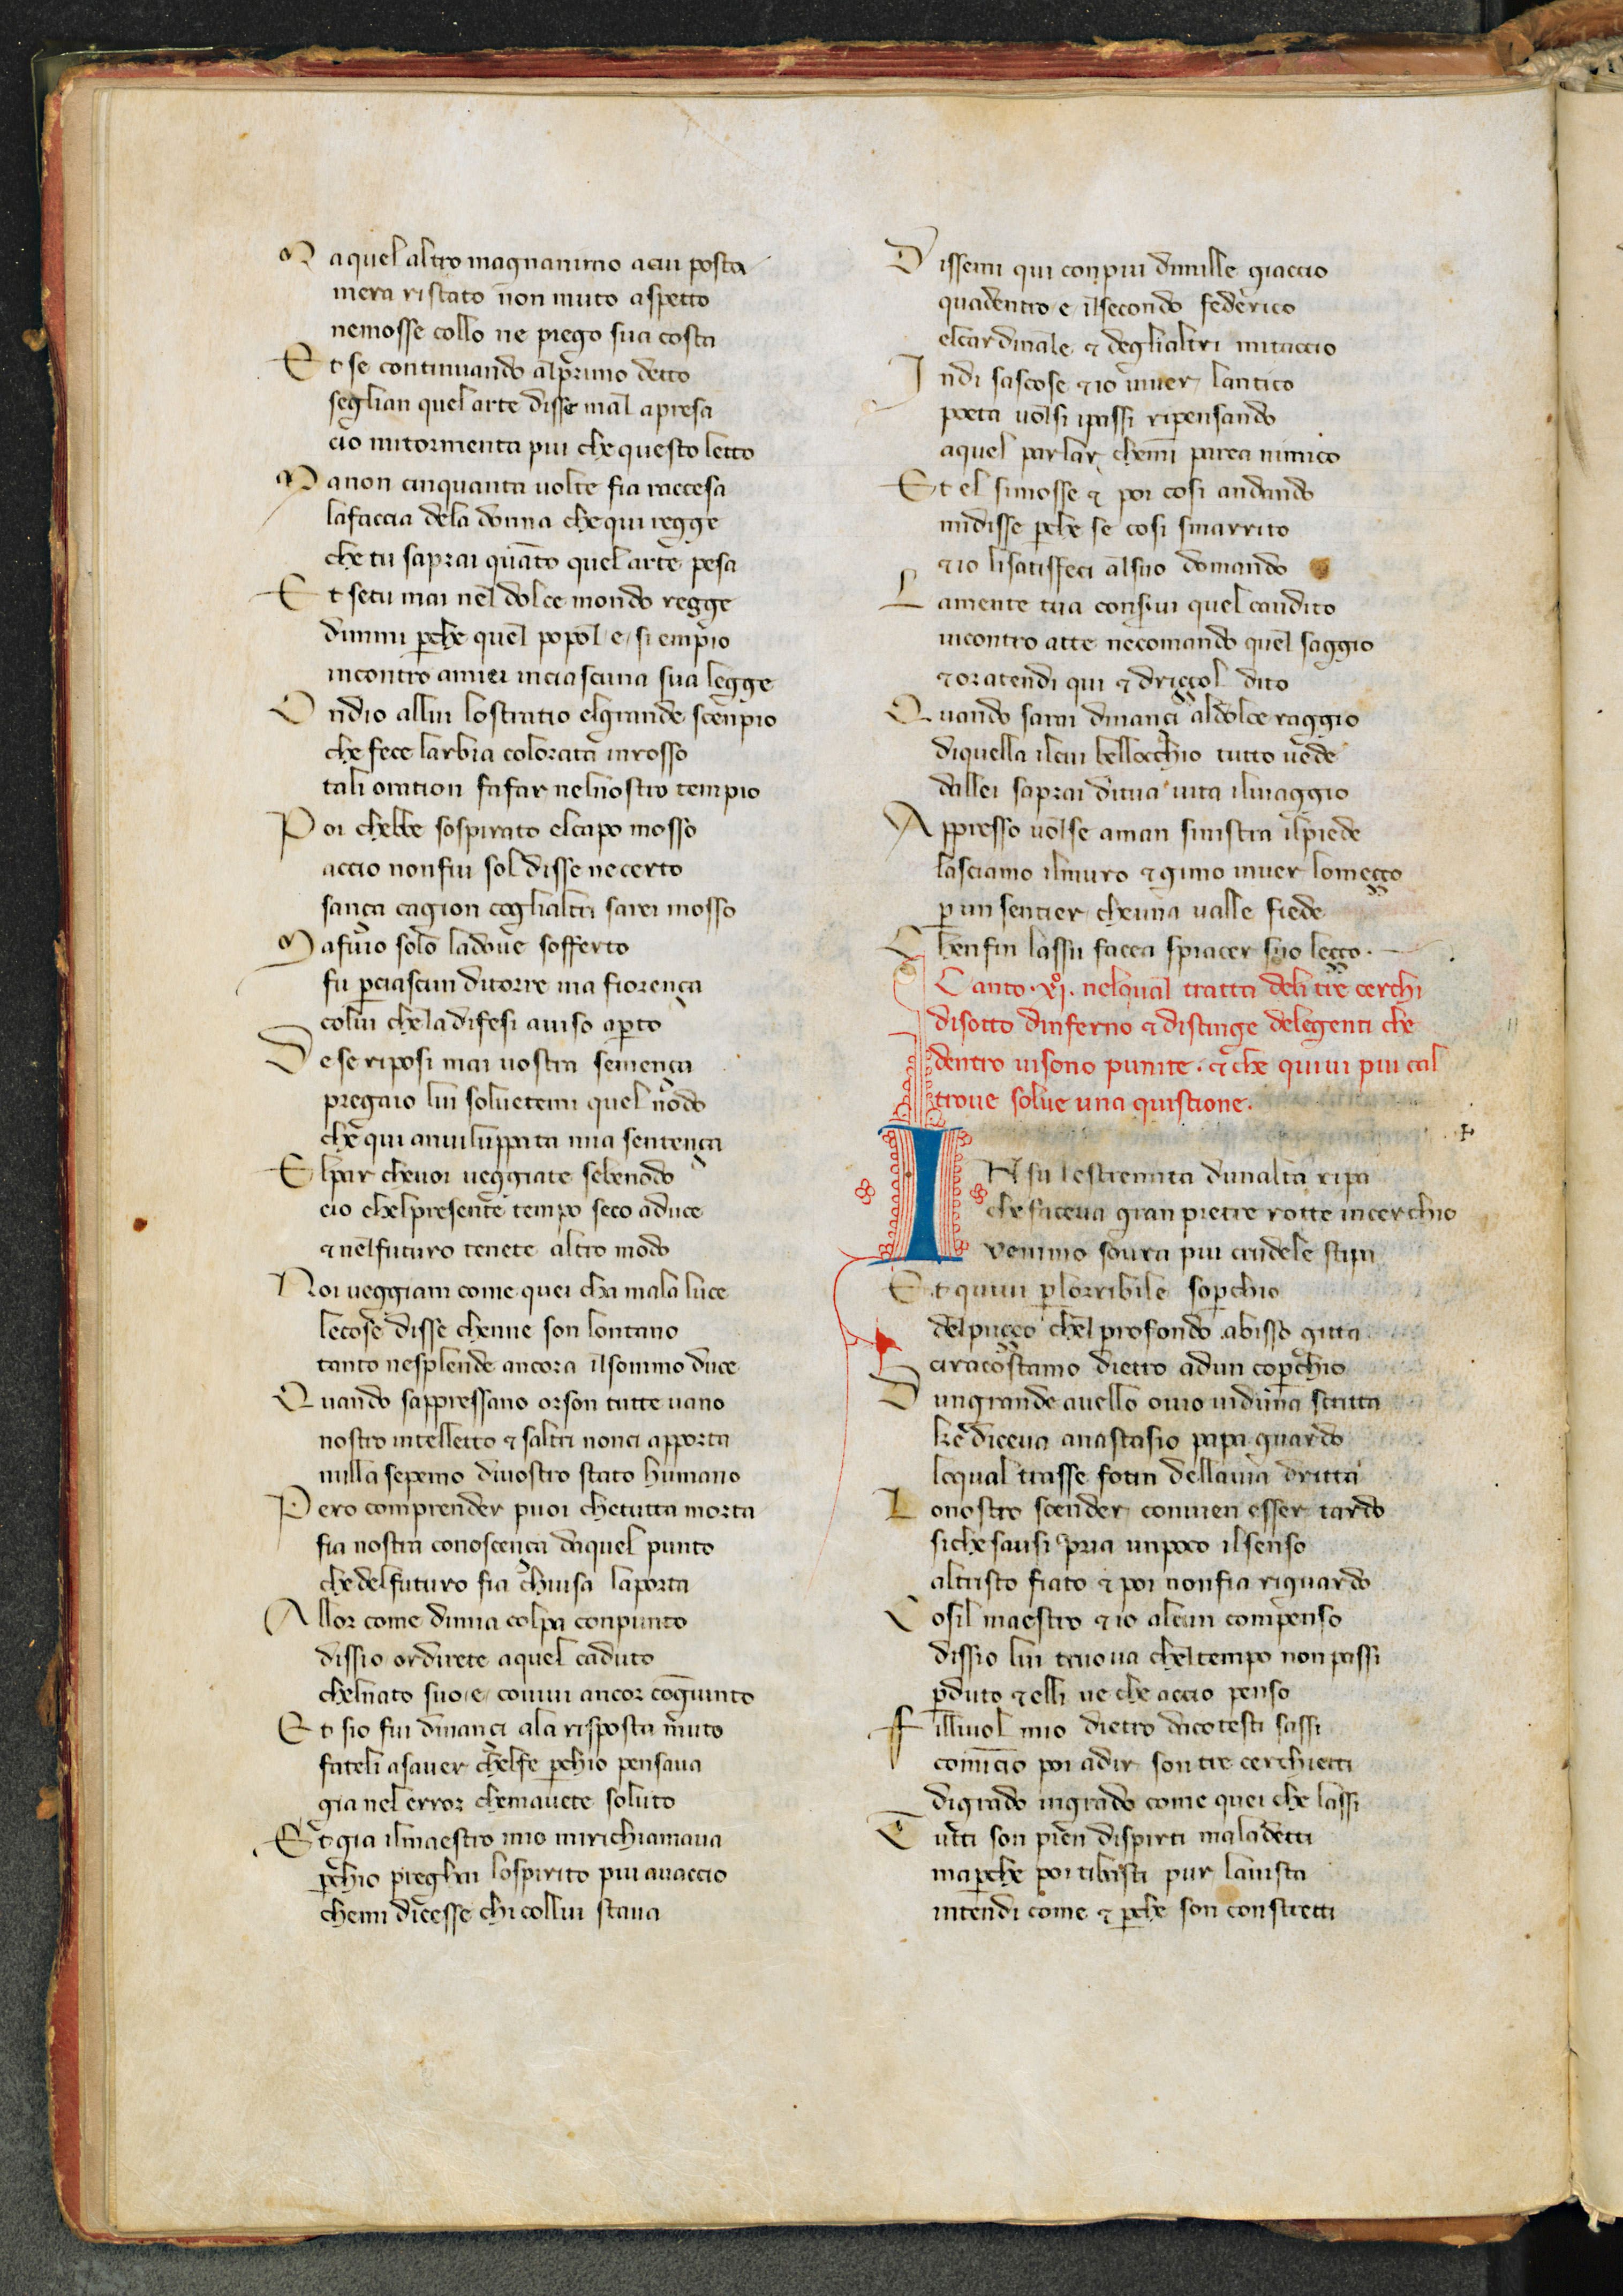 Ma quel altro magnanimo acui posta
mera ristato non muto aspetto
nemosse collo ne piego sua costa
Et se continuando alprimo detto
seglian quel arte disse mal apresa
cio mitormenta piu che questo letto
Ma non cinquanta uolte fia raccesa
lafaccia dela donna che qui regge
che tu saprai quāto quel arte pesa
Et setu mai nel dolce mondo regge
dimmi pche quel popol e si empio
incontro amiei inciascuna sua legge
Ondio allui lostratio elgrande scempio
che fece larbia colorata inrosso
tali oration fafar nelnostro tempio
Poi chebbe sospirato elcapo mosso
accio nonfui sol disse ne certo
sança cagion coglialtri sarei mosso
Ma fuio solo ladoue sofferto
fu pciascun ditorre uia fiorença
colui chela difesi auiso apto
De se riposi mai uostra semença
pregaio lui soluetemi quel nodo
che qui auiluppata mia sentença
El par cheuoi ueggiate sebenodo
cio chelpresente tempo seco aduce
⁊ nelfuturo tenete altro modo
Noi ueggiam come quei cha mala luce
lecose disse chenne son lontano
tanto nesplende ancora ilsommo duce
Quando sappressano orson tutte uano
nostro intelletto ⁊ saltri nonci apporta
nulla sepemo diuostro stato humano
Pero comprender puoi chetutta morta
fia nostra conoscença daquel punto
che delfuturo fia chiusa laporta
Allor come dimia colpa conpunto
dissio ordirete aquel caduto
chelnato suo e coiuiui ancor cogiunto
Et sio fui dinanci ala risposta muto
fateli asauer chelfe pchio pensaua
gia nel error chemauete soluto
Et gia ilmaestro mio mirichiamaua
pchio preghai lospirito piu auaccio
chemi dicesse chi collui staua
Dissemi qui conpiu dimille giaccio
quadentro e ilsecondo federico
elcardinale ⁊ deglialtri mitaccio
Indi sascose ⁊ io inuer lantico
poeta uolsi ipassi ripensando
aquel parlar chemi parea nimico
Et el simosse ⁊ poi cosi andando
midisse pche se cosi smarrito
⁊ io lisatisfeci alsuo domando
La mente tua consirui quel caudito
incontro atte necomando quel saggio
⁊ ora tendi qui ⁊ driççol dito
Quando sarai dinanci aldolce raggio
diquella ilcui bellocchio tutto uede
dallei saprai ditua uita iluiaggio
Appresso uolse aman sinistra ilpiede
lasciamo ilmuro ⁊ gimo inuer lomeçço
p un sentier cheuna ualle fiede
Chenfin lassu facea spiacer suo leçço.
Canto .xj. nelqual tratta deli tre cerchi
disotto dinferno ⁊ distinge delegenti che
dentro uisono punite. ⁊ che quiui piu cal
troue solue una quistione.
IN su lestremita dunalta ripa
che faceua gran pietre rotte incerchio
uenimmo soura piu crudele stipa
Et quiui plorribile sopchio
delpuçço chel profondo abisso gitta
ciracostamo dietro adun copchio
Dungrande auello ouio uiduna scritta
ke diceua anastasio papa guardo
loqual trasse fotin dellauia dritta
Lo nostro scender conuien esser tardo
siche sausi pria unpoco ilsenso
altristo fiato ⁊ poi nonfia riguardo
Cosil maestro ⁊ io alcun compenso
dissio lui truoua cheltempo non passi
pduto ⁊ elli ue che accio penso
Filliuol mio dietro dacotesti sassi
comīcio poi adir son tre cerchietti
digrado ingrado come quei che lassi
Tutti son pien dispirti maladetti
mapche poi tibasti pur lauista
intendi come ⁊ pche son constretti